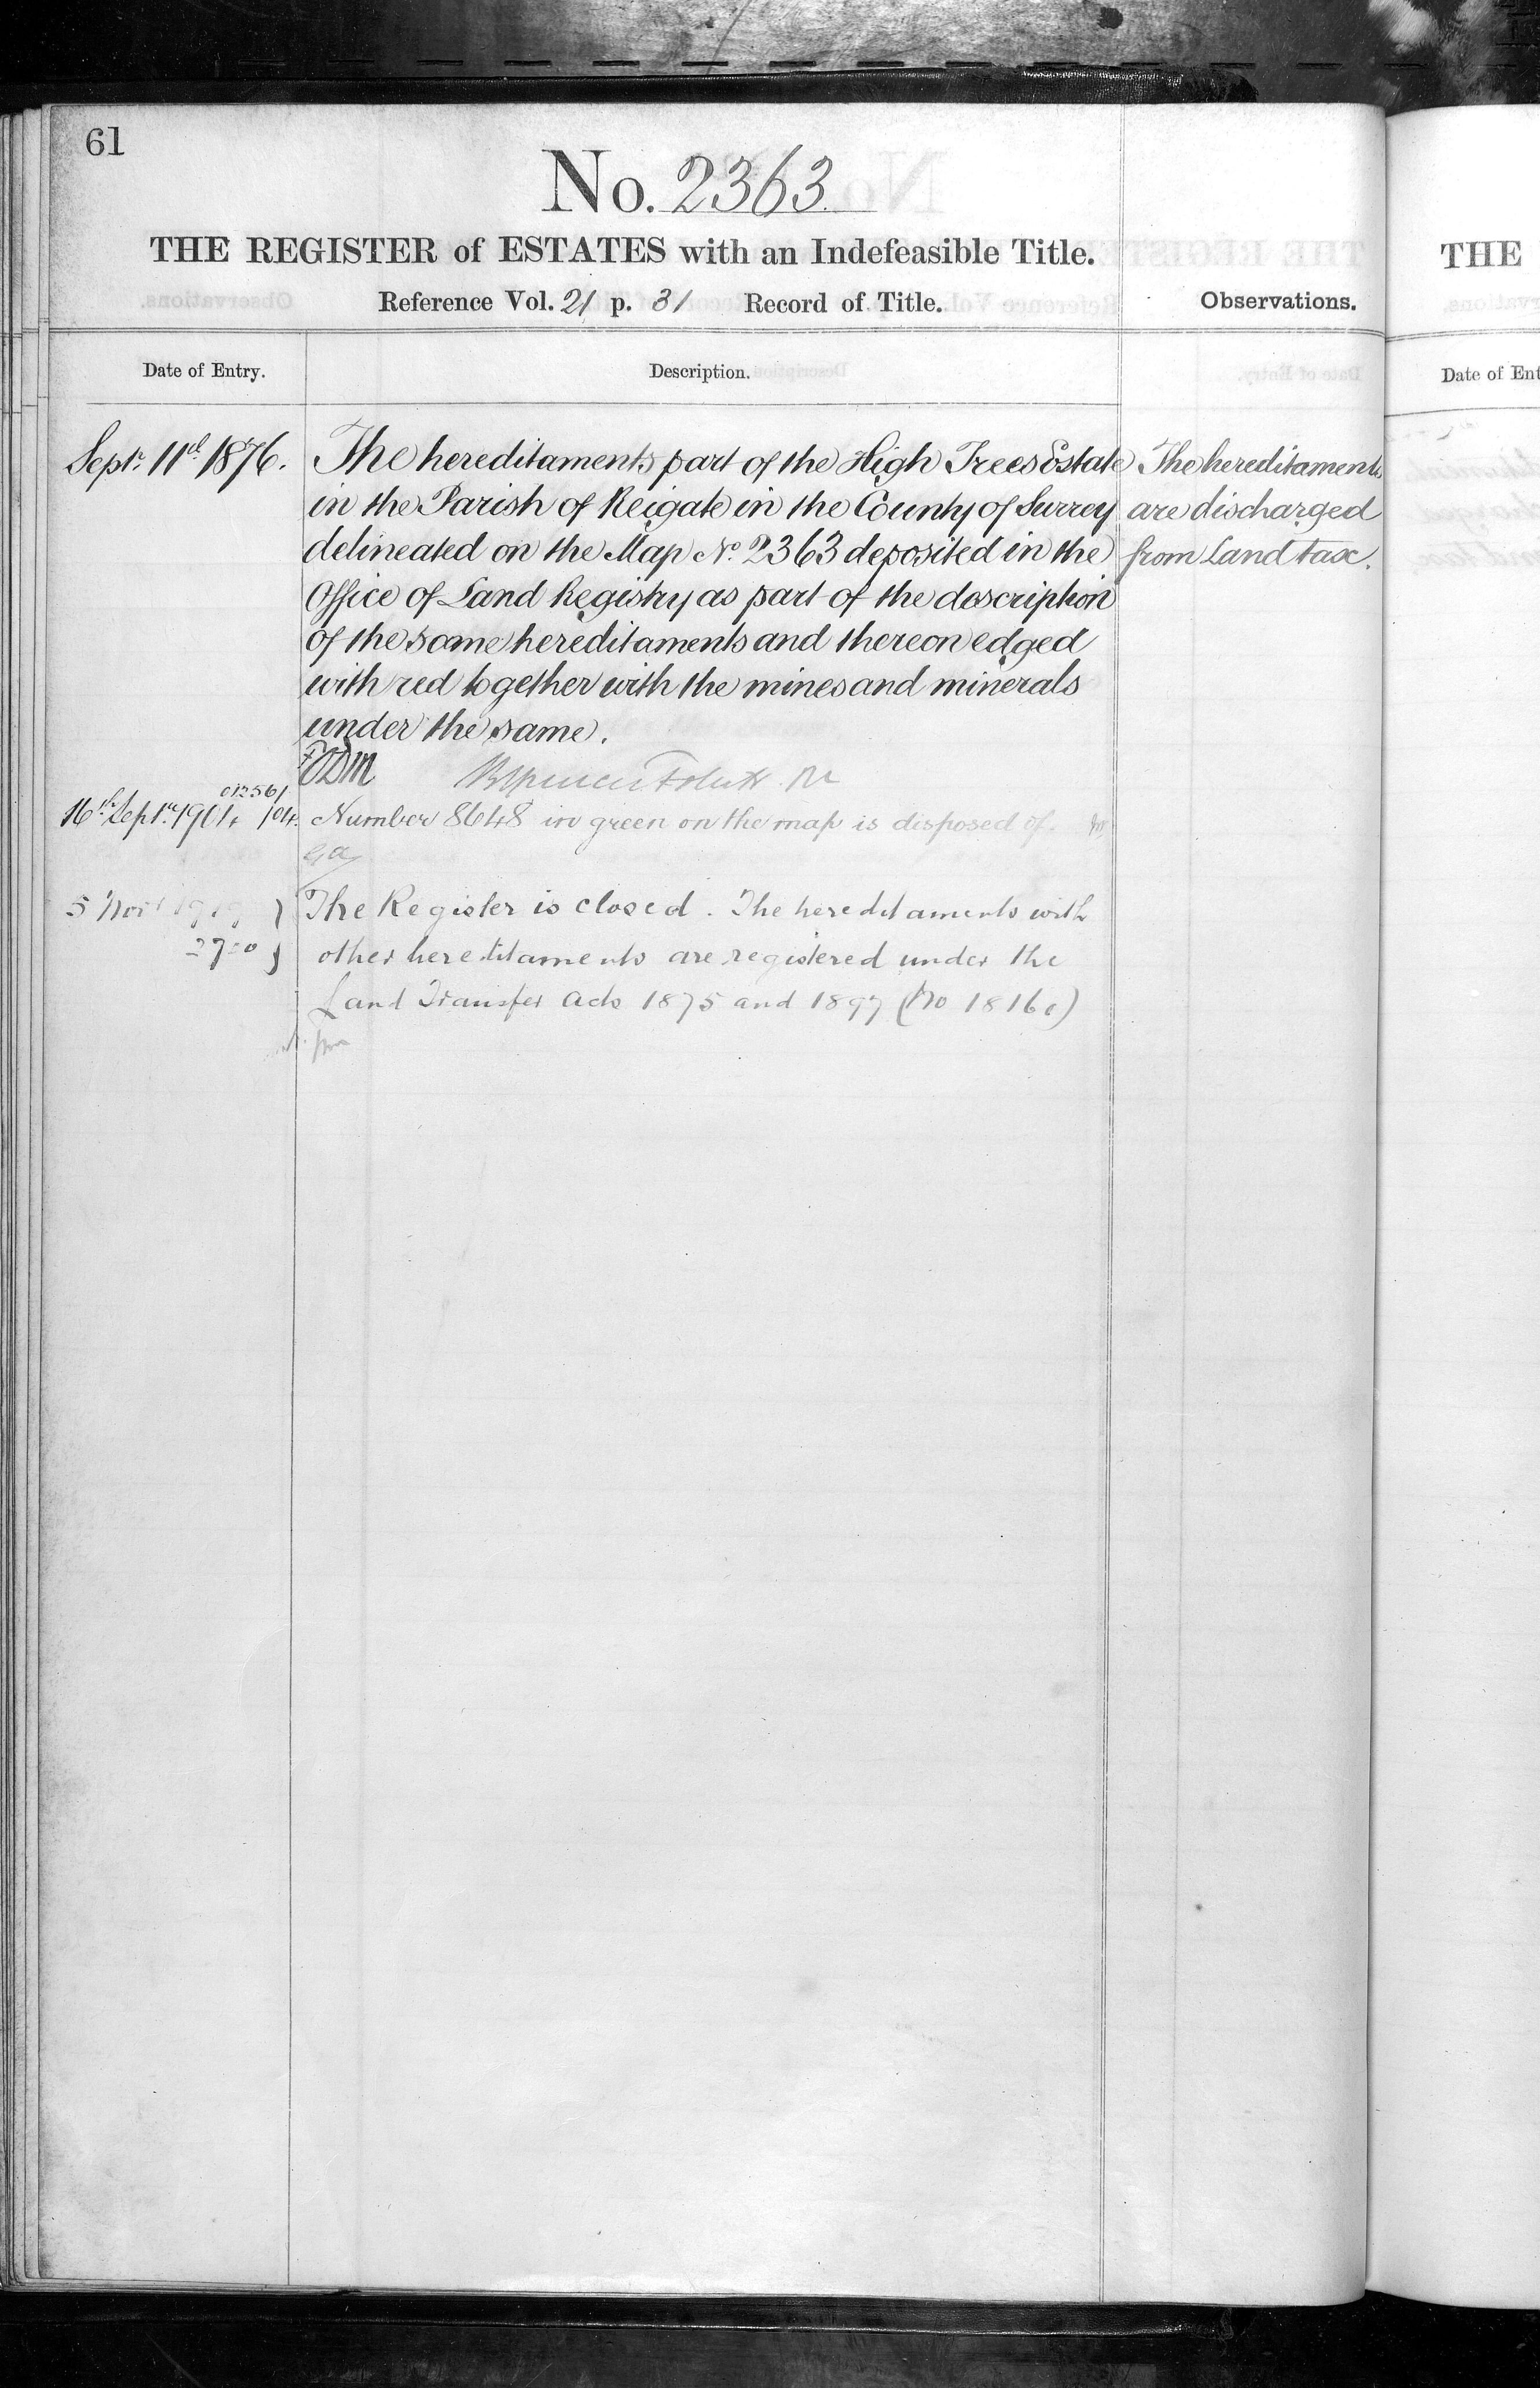 61
No. 2363
THE REGISTER of ESTATES with an Indefeasible Title.
Reference Vol. 21 p. 31 Record of Title.
Observations.
Date of Entry.
Description.
Septr. 11th 1876.
The hereditaments part of the High Trees Estate
in the Parish of Reigate in the County of Surrey
delineated on the Map No. 2363 deposited in the
Office of Land Registry as part of the description
of the same hereditaments and thereon edged
with red together with the mines and minerals
under the same.
The hereditaments
are discharged
from Land tax.
16th Septr. 1904
Number 8648 in green on the map is disposed of.
5 Novr
The Register is closed. The hereditaments with
other hereditaments are registered under the
Land Transfer Acts 1875 and 1897 (No
THE
Date of Ent